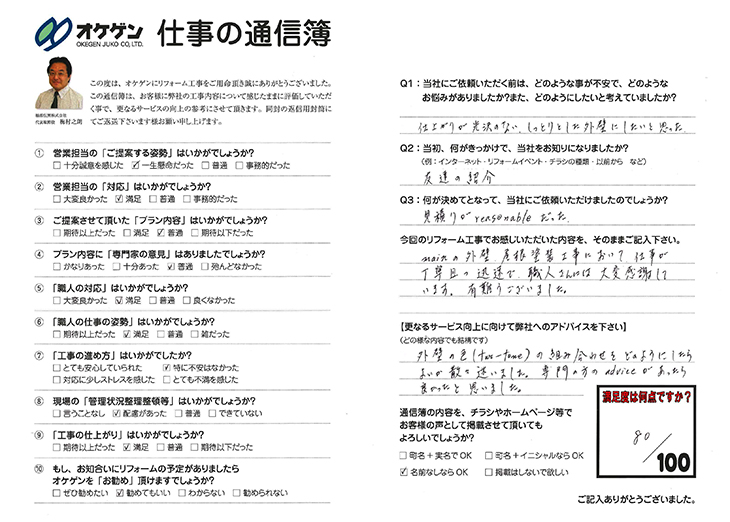 オケゲン
OKEGEN JUKO CO,. LTD.
仕事の通信簿
この度は、オケゲンにリフォーム工事をご用命頂き誠にありがとうございました。
この通信簿は、お客様に弊社の工事内容について感じたままに評価していただく事で、更なるサービスの向上の参考にさせて頂きます。同封の返信用封筒にてご返送下さいます様お願い申し上げます。
代表取締役 梅村之朗
① 営業担当の「ご提案する姿勢」はいかがでしょうか?
□十分誠意を感じた ☑一生懸命だった □普通 □事務的だった
② 営業担当の「対応」はいかがでしょうか?
□大変良かった ☑満足 □普通 □事務的だった
③ ご提案させて頂いた「プラン内容」はいかがでしょうか?
□期待以上だった □満足 ☑普通 □期待以下だった
④ プラン内容に「専門家の意見」はありましたでしょうか?
□かなりあった □十分あった ☑普通 □殆んどなかった
⑤ 「職人の対応」はいかがでしょうか?
□大変良かった ☑満足 □普通 □良くなかった
⑥ 「職人の仕事の姿勢」はいかがでしょうか?
□期待以上だった ☑満足 □普通 □雑だった
⑦ 「工事の進め方」はいかがでしたか?
□とても安心していられた ☑特に不安はなかった
□対応に少しストレスを感じた □とても不満を感じた
⑧ 現場の「管理状況整理整頓等」はいかがでしょうか?
□言うことなし ☑配慮があった □普通 □できていない
⑨ 「工事の仕上がり」はいかがでしょうか?
□期待以上だった ☑満足 □普通 □期待以下だった
⑩ もし、お知合いにリフォームの予定がありましたら
オケゲンを「お勧め」頂けますでしょうか?
□ぜひ勧めたい ☑勧めてもいい □わからない □勧められない
Q1:当社にご依頼いただく前は、どのような事が不安で、どのような
お悩みがありましたか?また、どのようにしたいと考えていましたか?
仕上がりが光沢のない、しっとりとした外壁にしたいと思った
Q2:当初、何がきっかけで、当社をお知りになりましたか?
(例:インターネット・リフォームイベント・チラシの種類・以前から など)
友達の紹介
Q3:何が決めてとなって、当社にご依頼いただけましたのでしょうか?
見積りが reasonable だった
今回のリフォーム工事でお感じいただいた内容を、そのままご記入下さい。
mainの外壁、屋根塗装工事において、仕事が
丁寧且つ迅速で、職人さんには大変感謝して
います。有難うございました。
【更なるサービス向上に向けて弊社へのアドバイスを下さい】
(どの様な内容でも結構です)
外壁の色(two-tone)の組み合わせをどのようにしたら
よいか散々迷いました。専門の方のadviceがあったら
良かったと思いました。
通信簿の内容を、チラシやホームページ等で
お客様の声として掲載させて頂いても
よろしいでしょうか?
□町名+実名でOK □町名+イニシャルならOK
☑名前なしならOK □掲載はしないで欲しい
満足度は何点ですか?
80/100
ご記入ありがとうございました。